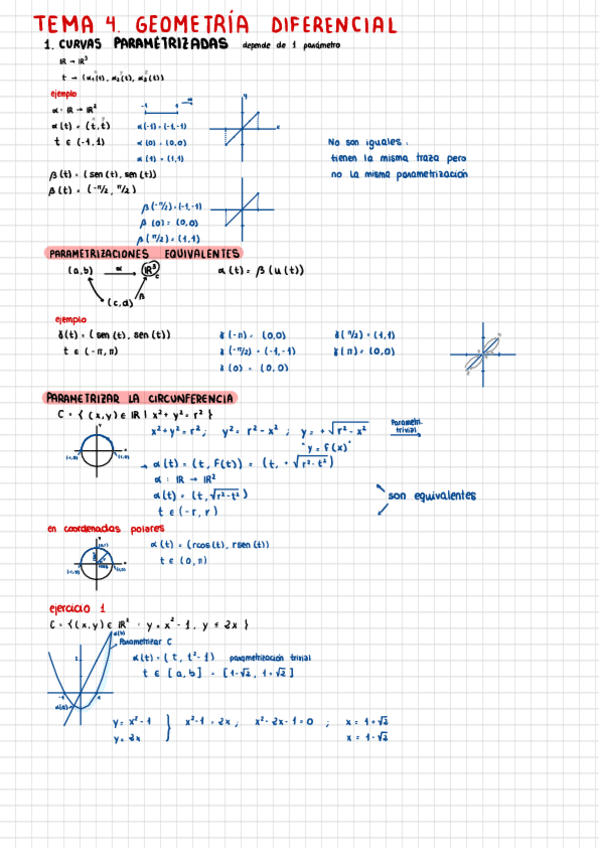 TEMA 4. GEOMETRÍA DIFERENCIAL
1. CURVAS PARAMÉTRIZADAS depende de 1 parámetro
IR → IR³
t → (α₁(t), α₂(t), α₃(t))
ejemplo
α: IR → IR²
α(t) = (t, t)
t ∈ (-1, 1)
-1 1
α(-1) = (-1, -1)
α(0) = (0,0)
α(1) = (1,1)
No son iguales,
tienen la misma traza pero
no la misma parametrización
β(t) = (sen(t), sen(t))
β(t) = (-π/2, π/2)
β(-π/2) = (-1, -1)
β(0) = (0,0)
β(π/2) = (1,1)
PARAMETRIZACIONES EQUIVALENTES
(a,b) α → IR³
(c,d) β
α(t) = β(u(t))
ejemplo
γ(t) = (sen(t), sen(t))
t ∈ (-π, π)
γ(-π) = (0,0)
γ(-π/2) = (-1, -1)
γ(0) = (0,0)
γ(π/2) = (1,1)
γ(π) = (0,0)
PARAMETRIZAR LA CIRCUNFERENCIA
C = { (x,y) ∈ IR | x² + y² = r² }
x² + y² = r² ; y² = r² - x² ; y = + √r² - x² Parametri. trivial
"y = f(x)"
→ α(t) = (t, F(t)) = (t, + √r² - t²)
α : IR → IR²
α(t) = (t, √r² - t²)
t ∈ (-r, r)
son equivalentes
en coordenadas polares
α(t) = (rcos(t), rsen(t))
t ∈ (0, π)
ejercicio 1
C = {(x,y) ∈ IR² : y = x² - 1, y ≤ 2x }
α(b)
Parametrizar C
α(t) = (t, t² - 1) parametrización trivial
t ∈ [a, b] = [1-√2, 1+√2]
α(a)
y = x² - 1
y = 2x
x² - 1 = 2x ; x² - 2x - 1 = 0 ; x = 1 + √2
x = 1 - √2